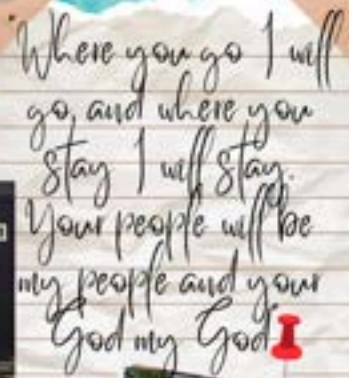 "Where you go I will
go, and where you
stay I will stay.
Your people will be
my people and your
God my God.